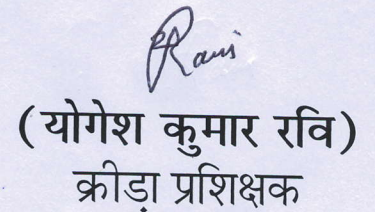 Ravi
(योगेश कुमार रवि)
क्रीड़ा प्रशिक्षक